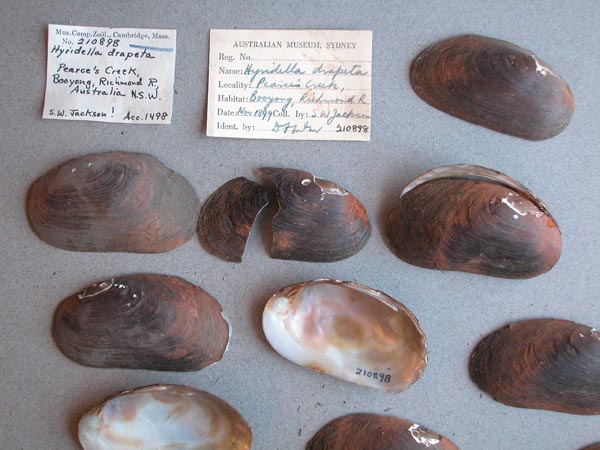 Mus. Comp. Zoöl., Cambridge, Mass.
No. 210898
Hyridella drapeta
Pearce's Creek,
Booyong, Richmond R,
Australia N.S.W.
S.W. Jackson! Acc. 1498
AUSTRALIAN MUSEUM, SYDNEY
Reg. No.
Name: Hyridella drapeta
Locality: Pearces Creek,
Habitat: Booyong, Richmond R.
Date: Nov 1899 Coll. by: S.W Jackson
Ident. by: 210898
210898